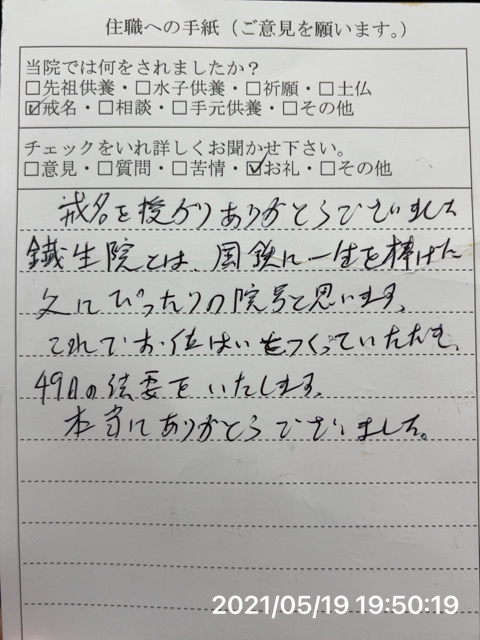 住職への手紙（ご意見を願います。）
当院では何をされましたか？
□先祖供養・□水子供養・□祈願・□土仏
☑戒名・□相談・□手元供養・□その他
チェックをいれ詳しくお聞かせ下さい。
□意見・□質問・□苦情・☑お礼・□その他
戒名を授かりありがとうございました
鐵生院とは、国鉄に一生を捧げた
父にぴったりの院号と思います。
これでお位はいをつくっていただき、
49日の法要をいたします。
本当にありがとうございました。
2021/05/19 19:50:19